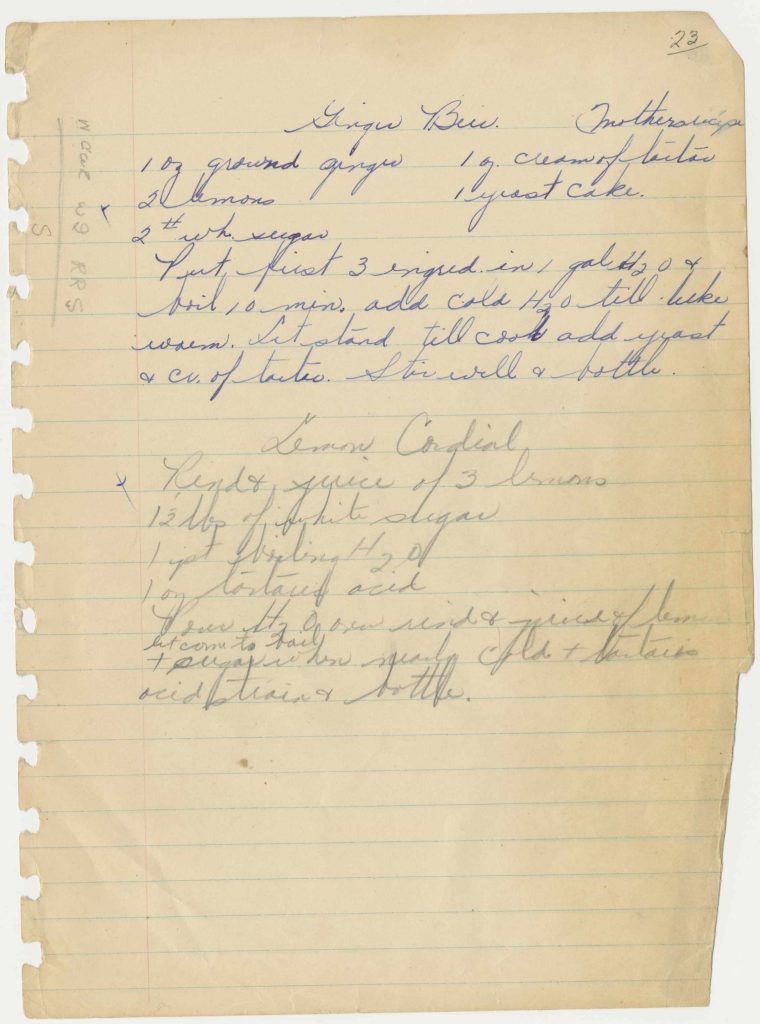 23
Ginger Beer. Mothers recipe
1 oz ground ginger 1 oz. cream of tartar
2 lemons 1 yeast cake.
2 # wh. sugar
Put first 3 ingred. in 1 gal H2O &
boil 10 min. add cold H2O till luke
warm. Let stand till cool add yeast
& cr. of tartar. Stir well & bottle.
Lemon Cordial
Rind & juice of 3 lemons
lbs of white sugar
1 pt boiling H2O
1 oz tartaric acid
Pour H2O over rind & juice of lemon
let come to boil
+ sugar when nearly cold + tartaric
acid strain & bottle.